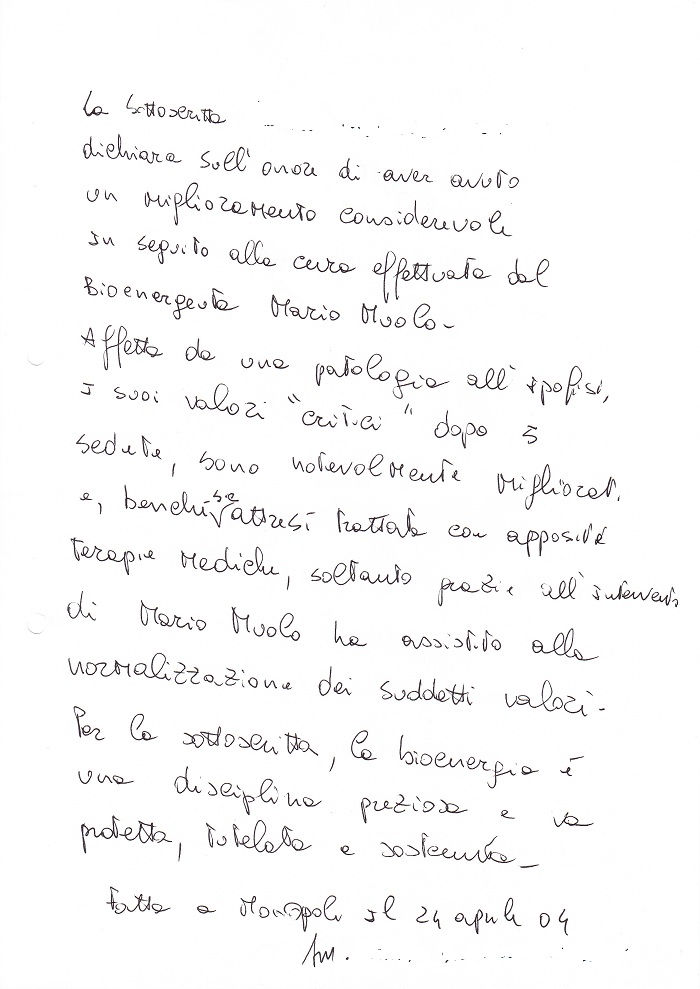 La sottoscritta
dichiara sull'onore di aver avuto
un miglioramento considerevole
in seguito alla cura effettuata dal
Bioenergeuta Mario Muolo -
Affetta da una patologia all'ipofisi,
i suoi valori "critici" dopo 5
sedute, sono notevolmente migliorati
e, benchè se altresì trattata con apposite
terapie mediche, soltanto grazie all'intervento
di Mario Muolo ha assistito alla
normalizzazione dei suddetti valori -
Per la sottoscritta, la bioenergia è
una disciplina preziosa e va
protetta, tutelata e sostenuta -
Fatto a Monopoli il 24 aprile 04